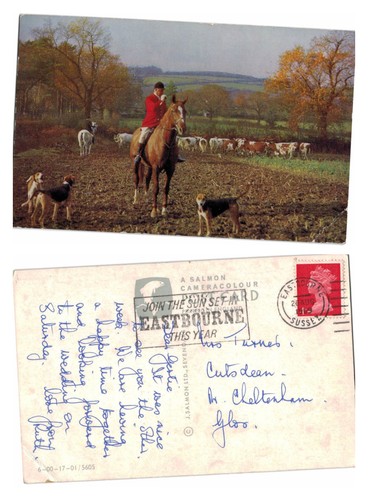 A SALMON
CAMERACOLOUR
POST CARD
JOIN THE SUN SET IN
EASTBOURNE
THIS YEAR
EASTBOURNE
SUSSEX
© J. SALMON LTD., SEVENOAKS
It was nice
to see you the
week. We are having
a happy time together
and looking forward
to the wedding on
Saturday. Love from
Ruth.
Mrs Turner.
Cutsdean.
Nr. Cheltenham.
Glos.
6-00-17-01/5605